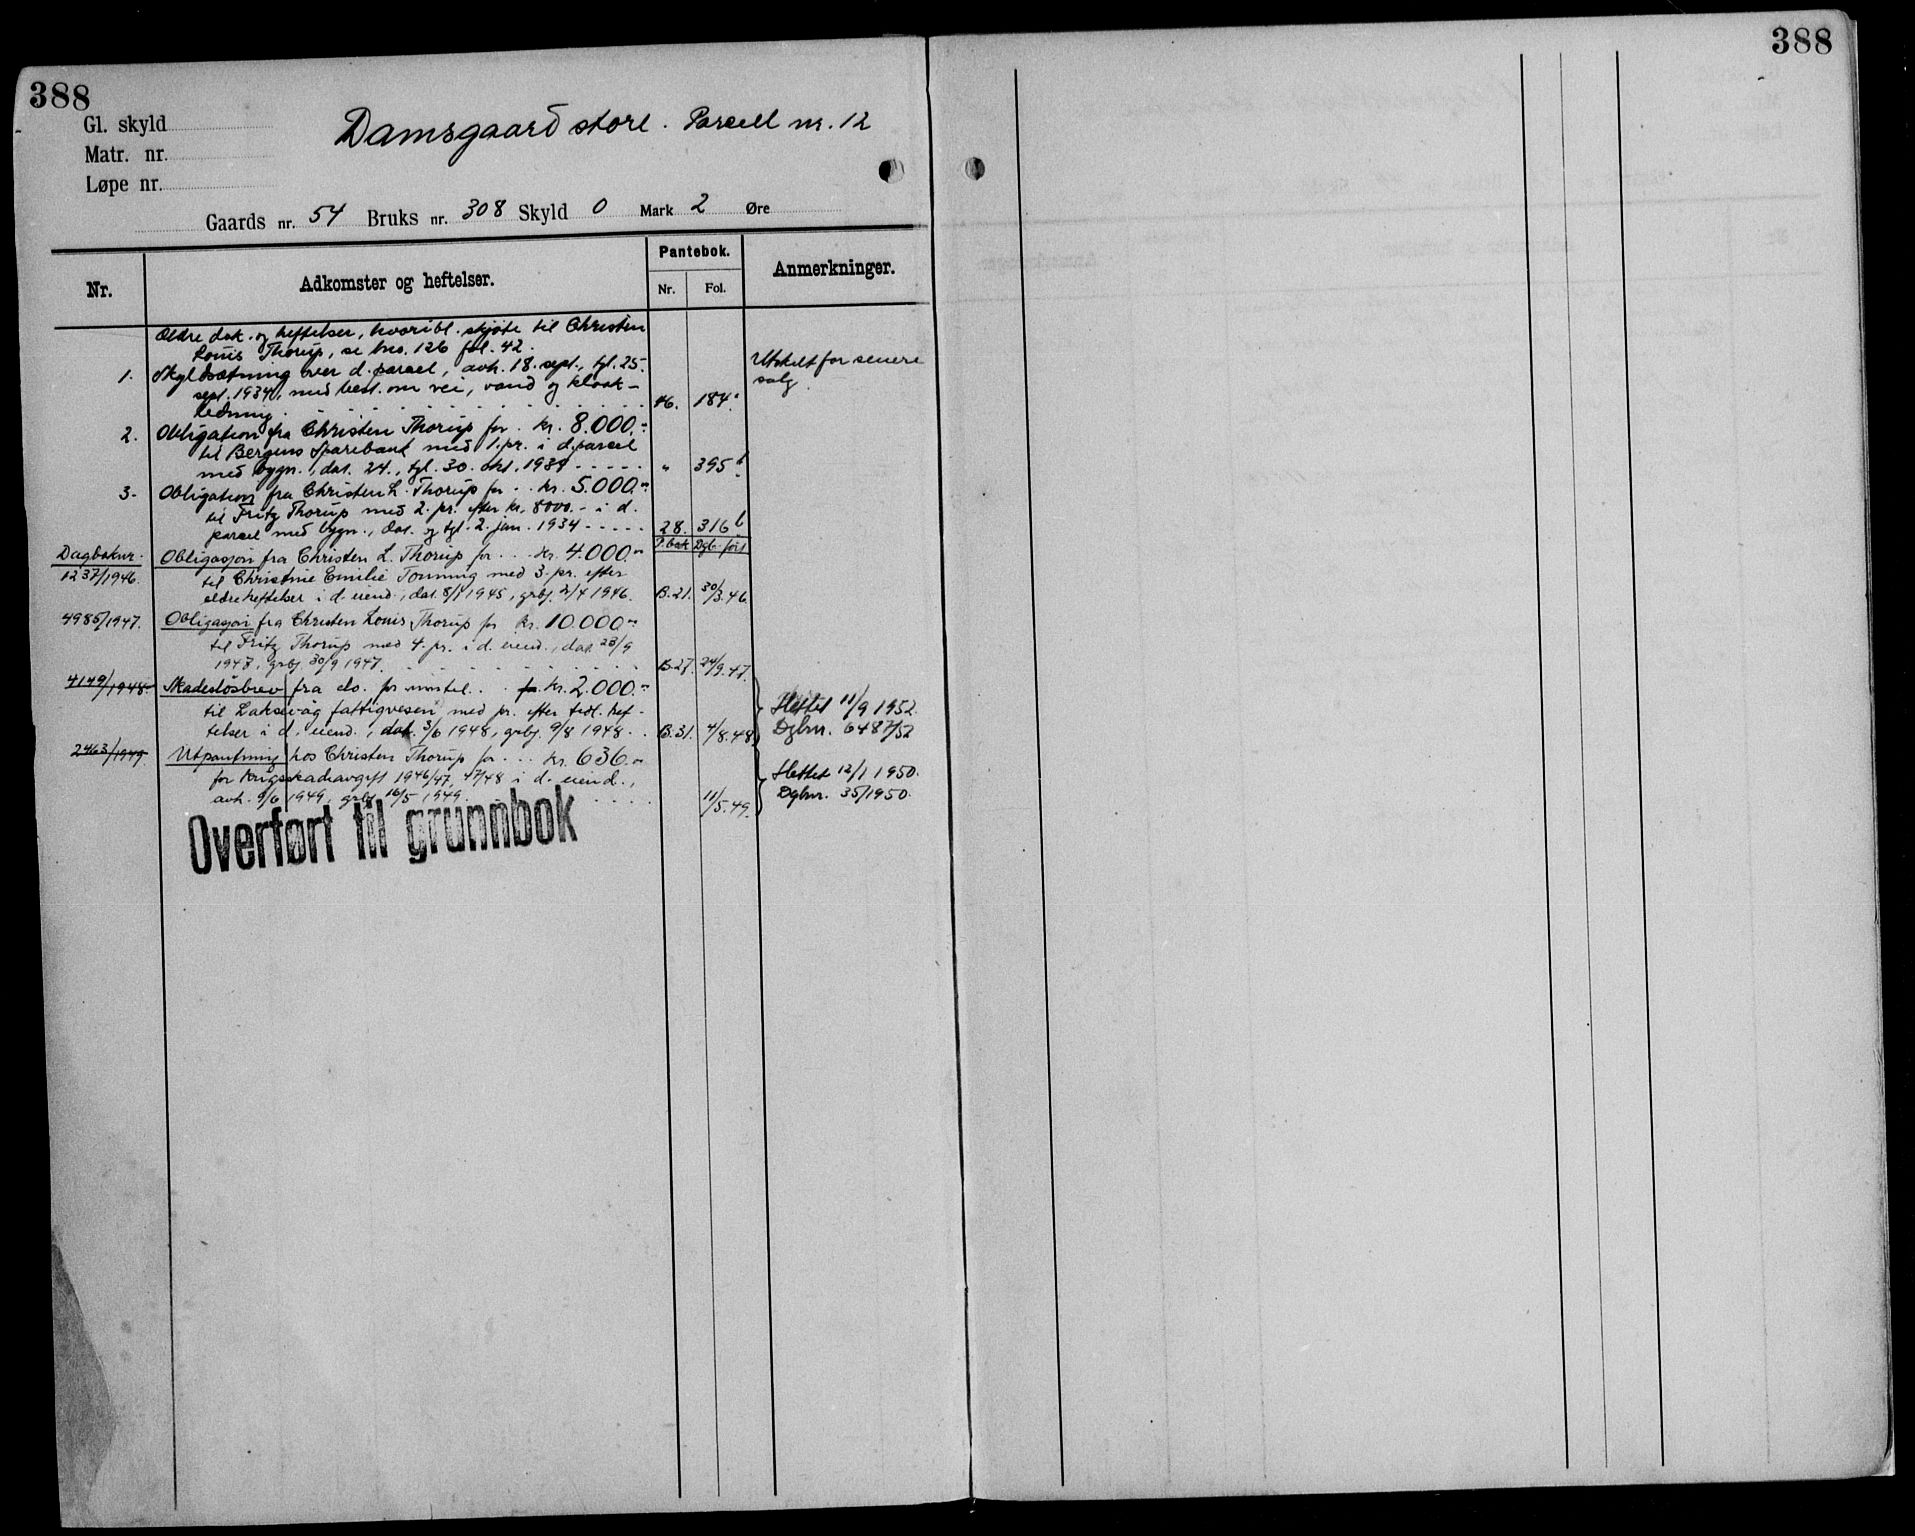 388
388
Gl. skyld
Matr. nr.
Løpe nr.
Damsgaard store. Parcell nr. 12
Gaards nr. 54 Bruks nr. 308 Skyld 0 Mark 2 Øre
Nr.
Adkomster og heftelser.
Pantebok.
Nr. Fol.
Anmerkninger.
Ældre dok. og heftelser, hvoribl. skjøte til Christen
Louis Thorup, se bnr. 126 fol. 42.
1. Skyldsætning over d. parcel, avh. 18. sept., tgl. 25.
sept. 1934, med best. om vei, vand og kloak-
ledning. 46. 184a
Utskilt for senere
salg.
2. Obligation fra Christen Thorup for kr. 8.000.-
til Bergens Sparebank med 1. pr. i d. parcel
med bygn., dat. 24., tgl. 30. okt. 1934 " 395b
3. Obligation fra Christen L. Thorup for kr. 5.000.-
til Fritz Thorup med 2. pr. efter kr. 8000.- i d.
parcel med bygn., dat. og tgl. 2. jan. 1934 28. 316b
P.bok Dgb. ført
Dagboknr.
1237/1946. Obligasjon fra Christen L. Thorup for kr. 4.000.-
til Christine Emilie Tonning med 3. pr. efter
eldre heftelser i d. eiend., dat. 8/1 1945, grbj. 2/4 1946. B.21. 30/3.46.
4985/1947. Obligasjon fra Christen Louis Thorup for kr. 10.000.-
til Fritz Thorup med 4. pr. i d. eiend., dat. 23/9
1947, grbj. 30/9 1947. B.27. 24/9.47.
4149/1948. Skadesløsbrev fra do. for inntil kr. 2.000.-
til Laksevåg fattigvesen med pr. efter tidl. hef-
telser i d. eiend., dat. 3/6 1948, grbj. 9/8 1948. B.31. 4/8.48.
Slettet 11/9 1952.
Dgbnr. 6487/52
2463/1949. Utpantning hos Christen Thorup for kr. 636.-
for krigsskadeavgift 1946/47, 47/48 i d. eiend.,
avh. 9/6 1949, grbj. 16/5 1949. 11/5.49.
Slettet 12/1 1950.
Dgbnr. 35/1950.
Overført til grunnbok